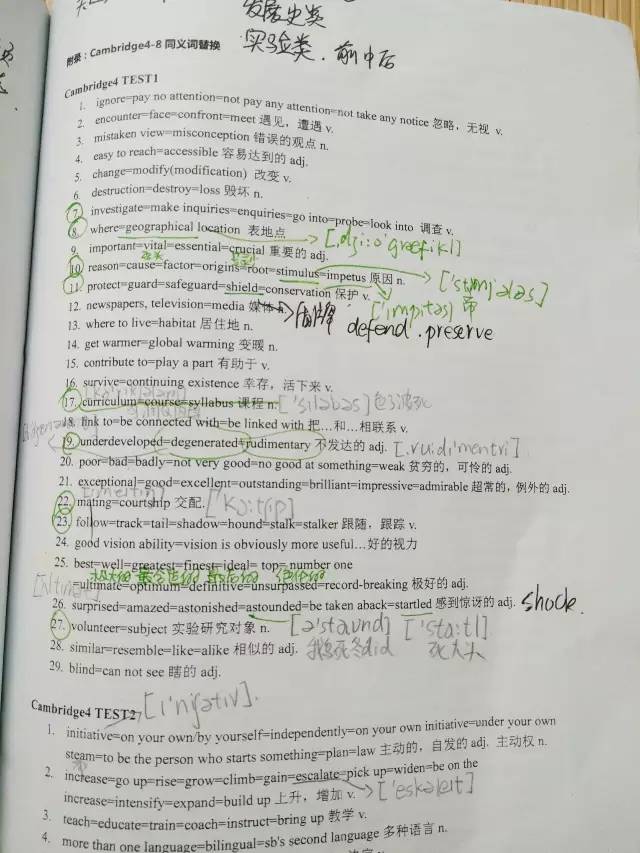 发展史类
实验类. 前中后
附录：Cambridge4-8 同义词替换
Cambridge4 TEST1
1. ignore=pay no attention=not pay any attention=not take any notice 忽略，无视 v.
2. encounter=face=confront=meet 遇见，遭遇 v.
3. mistaken view=misconception 错误的观点 n.
4. easy to reach=accessible 容易达到的 adj.
5. change=modify(modification) 改变 v.
6. destruction=destroy=loss 毁坏 n.
7. investigate=make inquiries=enquiries=go into=probe=look into 调查 v.
8. where=geographical location 表地点
9. important=vital=essential=crucial 重要的 adj.
10. reason=cause=factor=origins=root=stimulus=impetus 原因 n.
11. protect=guard=safeguard=shield=conservation 保护 v.
['impitəs]
12. newspapers, television=media 媒体 n.
defend. preserve
13. where to live=habitat 居住地 n.
14. get warmer=global warming 变暖 n.
15. contribute to=play a part 有助于 v.
16. survive=continuing existence 幸存，活下来 v.
17. curriculum=course=syllabus 课程 n. ['siləbəs]
18. link to=be connected with=be linked with 把…和…相联系 v.
19. underdeveloped=degenerated=rudimentary 不发达的 adj. [.ru:di'mentri]
20. poor=bad=badly=not very good=no good at something=weak 贫穷的，可怜的 adj.
21. exceptional=good=excellent=outstanding=brilliant=impressive=admirable 超常的，例外的 adj.
22. mating=courtship 交配
23. follow=track=tail=shadow=hound=stalk=stalker 跟随，跟踪 v.
24. good vision ability=vision is obviously more useful…好的视力
25. best=well=greatest=finest=ideal= top= number one
=ultimate=optimum=definitive=unsurpassed=record-breaking 极好的 adj.
26. surprised=amazed=astonished=astounded=be taken aback=startled 感到惊讶的 adj. shock.
27. volunteer=subject 实验研究对象 n. [ə'staund] ['sta:tl]
28. similar=resemble=like=alike 相似的 adj.
29. blind=can not see 瞎的 adj.
Cambridge4 TEST2
1. initiative=on your own/by yourself=independently=on your own initiative=under your own
steam=to be the person who starts something=plan=law 主动的，自发的 adj. 主动权 n.
2. increase=go up=rise=grow=climb=gain=escalate=pick up=widen=be on the
increase=intensify=expand=build up 上升，增加 v. ['eskəleit]
3. teach=educate=train=coach=instruct=bring up 教学 v.
4. more than one language=bilingual=sb's second language 多种语言 n.